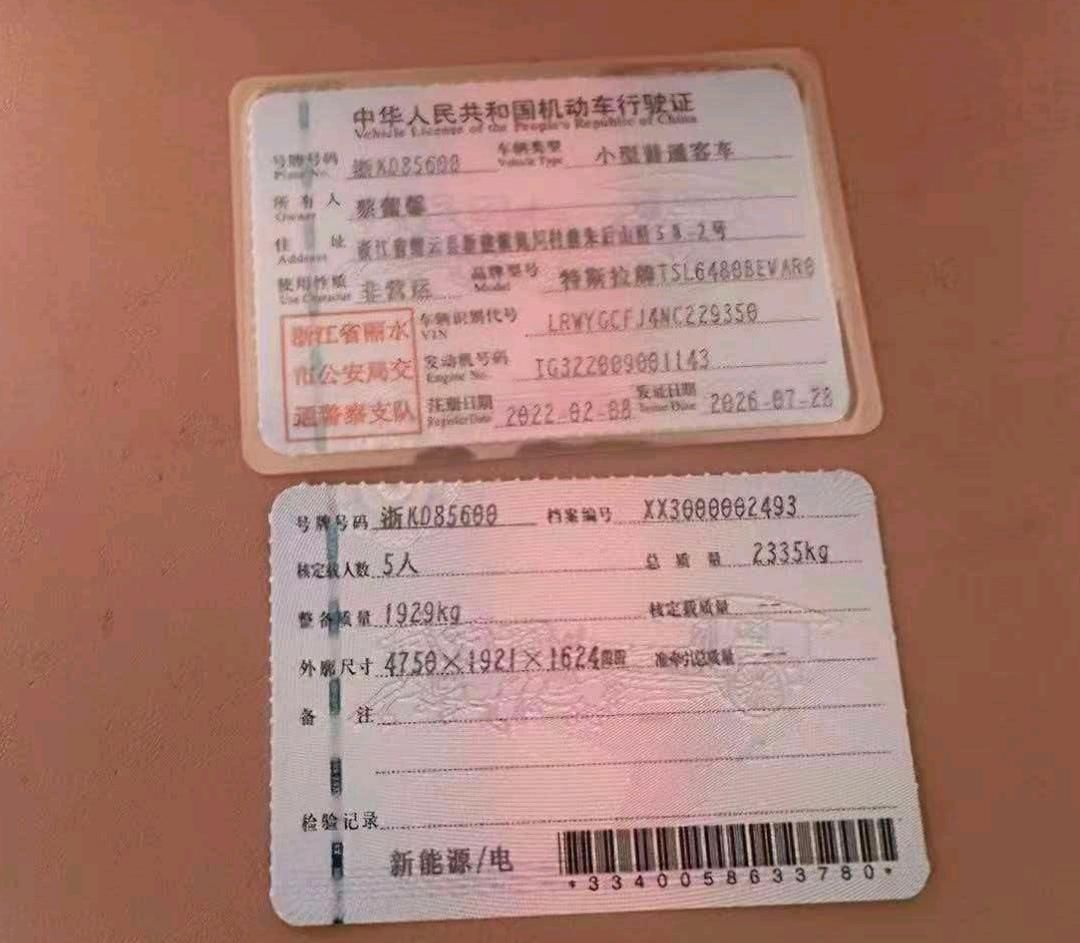 中华人民共和国机动车行驶证
Vehicle License of the People's Republic of China
号牌号码 浙KD85600 车辆类型 小型普通客车
Plate No. Vehicle Type
所有人 蔡馨
Owner
住址 浙江省缙云县 村 朱后山路58-2号
Address
使用性质 非营运 品牌型号 特斯拉牌TSL6480BEVAR0
Use Character Model
浙江省丽水 车辆识别代号 LRWYGCFJ4NC229350
VIN
市公安局交 发动机号码 TG322009001143
Engine No.
通警察支队 注册日期 2022-02-08 发证日期 2026-07-28
Register Date Issue Date
号牌号码 浙KD85600 档案编号 XX3000002493
核定载人数 5人 总质量 2335kg
整备质量 1929kg 核定载质量 --
外廓尺寸 4750×1921×1624mm 准牵引总质量 --
备注
检验记录
新能源/电
*3340058633780*